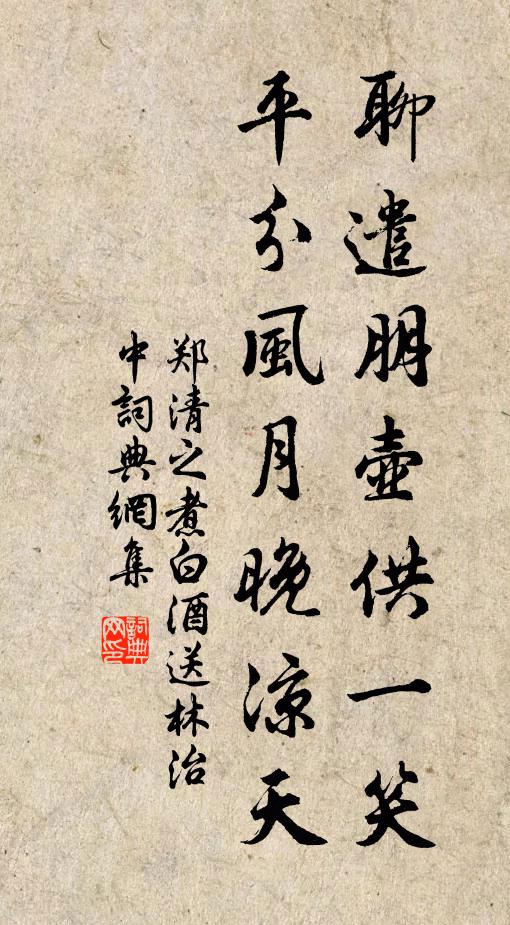 聊遣朋壺供一笑
平分風月晚凉天
郑清之煮白酒送林治
中詞典網集
詞典网印